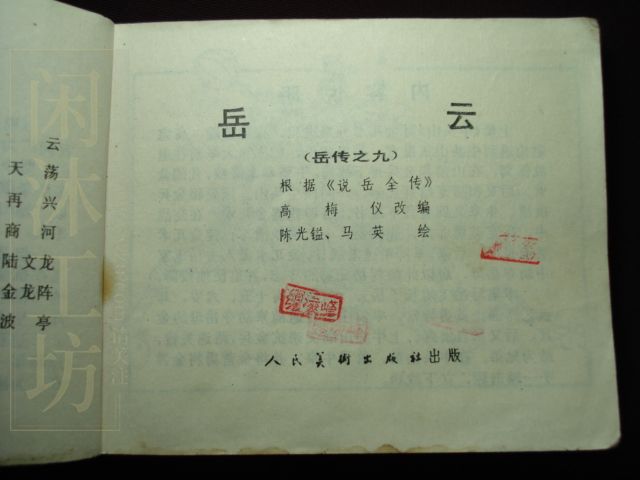 云
天荡
再兴
商河
陆文龙
金龙阵
波亭
岳云
（岳传之九）
根据《说岳全传》
高梅仪改编
陈光镒、马英绘
人民美術出版社出版
闲沐工坊